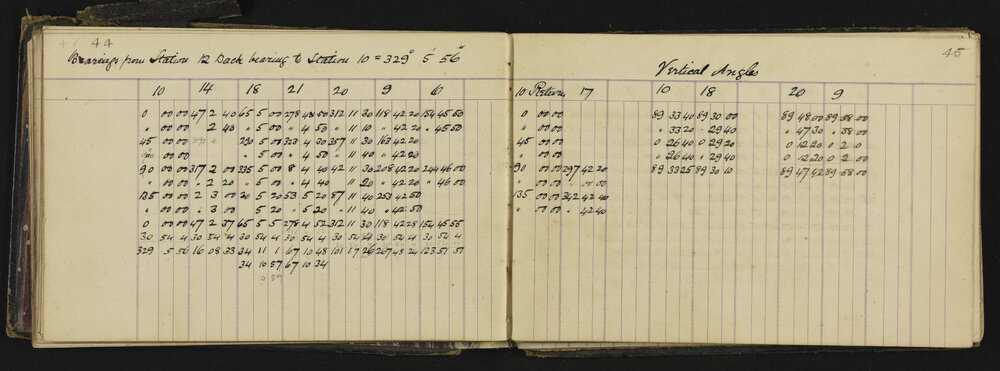 44
Bearings from Station 12 Back bearing to Station 10 = 329° 5' 56"
10 14 18 21 20 9 6
0 00 00 47 2 40 65 5 00 278 4 50 312 11 30 118 42 20 154 45 50
" 00 00 2 40 " 5 00 " 4 50 " 11 10 " 42 20 " 45 50
45 00 00 290 5 00 323 4 30 357 11 30 163 42 20
" 00 00 " 5 00 " 4 50 " 11 40 " 42 20
90 00 00 317 2 00 335 5 00 8 4 40 42 11 30 208 42 20 244 46 00
" 00 00 " 2 20 " 5 00 " 4 40 " 11 20 " 42 20 " 46 00
135 00 00 2 3 00 20 5 20 53 5 20 87 11 40 253 42 50
" 00 00 " 3 00 5 20 " 5 20 " 11 40 " 42 50
0 00 00 47 2 37 65 5 5 278 4 52 312 11 30 118 42 28 154 45 55
30 54 4 30 54 4 30 54 4 30 54 4 30 54 4 30 54 4 30 54 4
329 5 56 16 08 33 34 11 1 67 10 48 101 17 26 267 48 24 123 51 51
34 10 57 67 10 34
0 59
45
Vertical Angles
10 Return 17 10 18 20 9
0 00 00 89 33 40 89 30 00 89 48 00 89 58 00
" 00 00 " 33 20 " 29 40 " 47 30 " 58 00
45 00 00 0 26 40 0 29 20 0 12 20 0 2 0
" 00 00 " 26 40 " 29 40 0 12 20 0 2 00
90 00 00 297 42 20 89 33 25 89 30 10 89 47 42 89 58 00
" 00 00 " 00 00
135 00 00 342 42 40
" 00 00 " 42 40